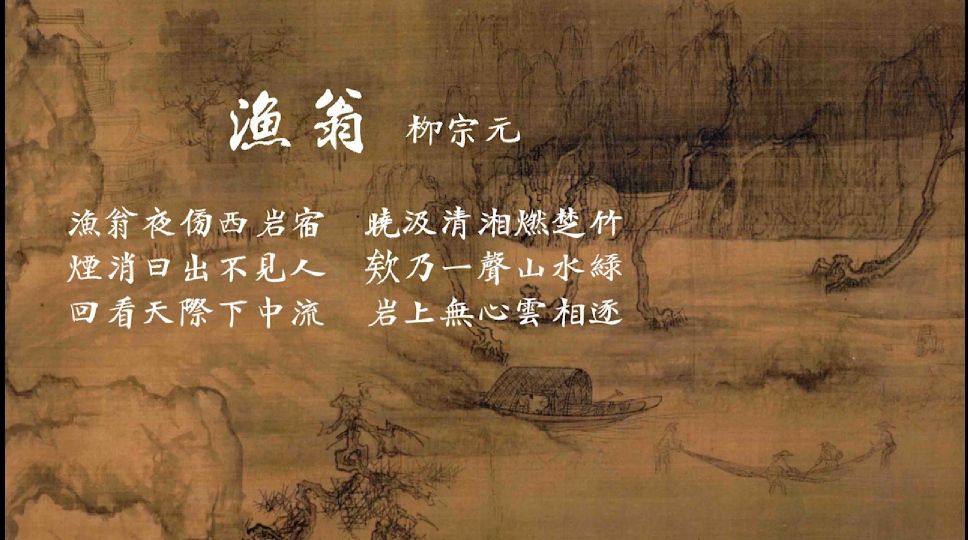 漁翁 柳宗元
漁翁夜傍西岩宿 曉汲清湘燃楚竹
煙消日出不見人 欸乃一聲山水綠
回看天際下中流 岩上無心雲相逐